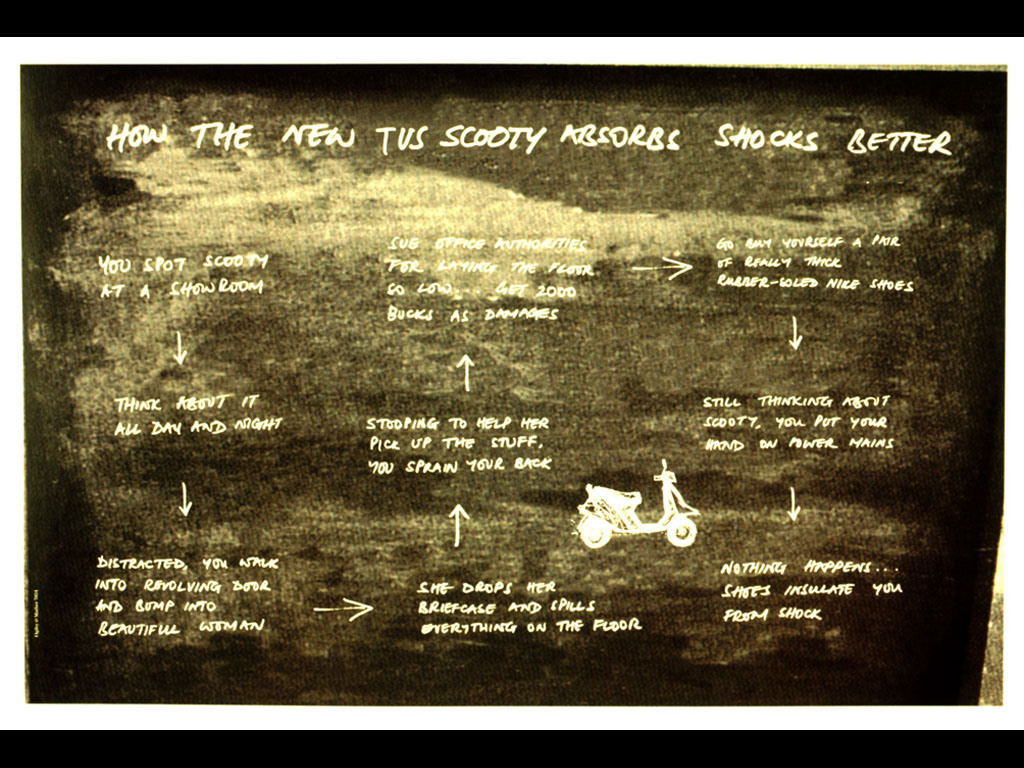 HOW THE NEW TVS SCOOTY ABSORBS SHOCKS BETTER
YOU SPOT SCOOTY
AT A SHOWROOM
THINK ABOUT IT
ALL DAY AND NIGHT
DISTRACTED, YOU WALK
INTO REVOLVING DOOR
AND BUMP INTO
BEAUTIFUL WOMAN
SHE DROPS HER
BRIEFCASE AND SPILLS
EVERYTHING ON THE FLOOR
STOOPING TO HELP HER
PICK UP THE STUFF,
YOU SPRAIN YOUR BACK
SUE OFFICE AUTHORITIES
FOR LAYING THE FLOOR
SO LOW... GET 2000
BUCKS AS DAMAGES
GO BUY YOURSELF A PAIR
OF REALLY THICK
RUBBER-SOLED NIKE SHOES
STILL THINKING ABOUT
SCOOTY, YOU PUT YOUR
HAND ON POWER MAINS
NOTHING HAPPENS...
SHOES INSULATE YOU
FROM SHOCK